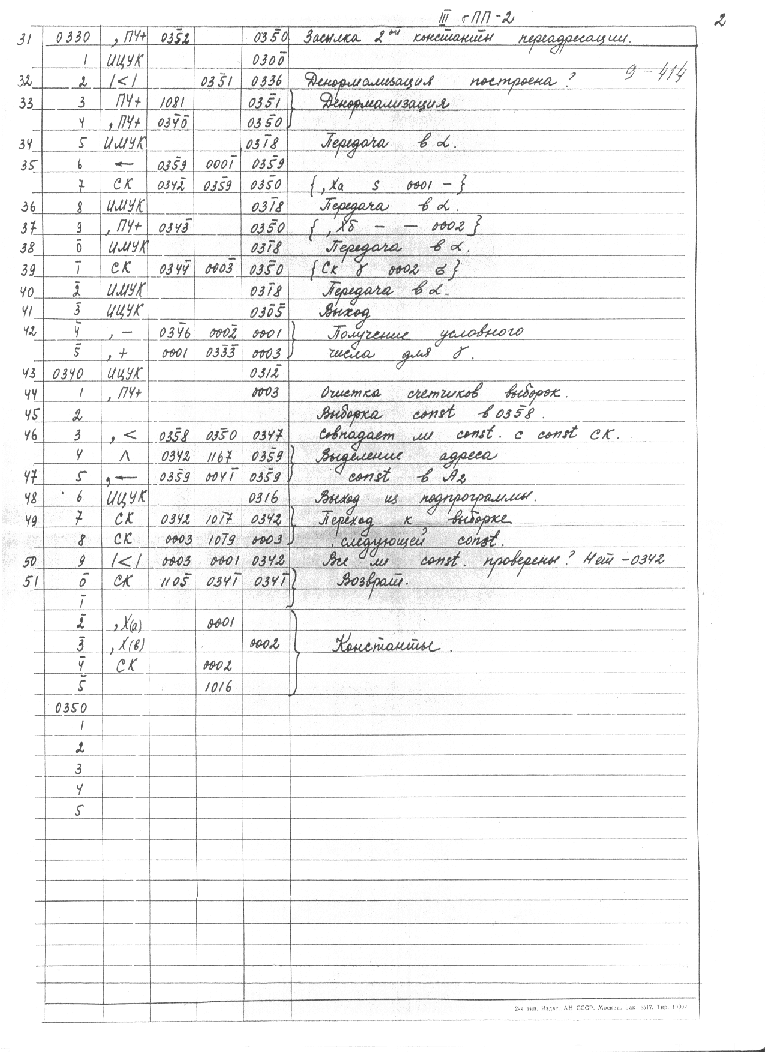 III гПП-2 2
31 0330 , ПЧ+ 035̄2 035̄0 Засылка 2ой константы переадресации.
1 ИЦУК 0300̄
9-414
32 2 |<| 035̄1 0336 Денормализация построена?
33 3 ПЧ+ 1081 035̄1 } Денормализация
4 , ПЧ+ 034̄0̄ 035̄0
34 5 ИМУК 031̄8 Передача в α.
35 6 ← 035̄9 0001̄ 035̄9
7 СК 0342̄ 035̄9 035̄0 {, Xa s 0001 –}
36 8 ИМУК 031̄8 Передача в α.
37 9 , ПЧ+ 0343̄ 035̄0 {, Xб – – 0002}
38 0̄ ИМУК 031̄8 Передача в α.
39 1̄ СК 0344̄ 0003̄ 035̄0 {Ск γ 0002 σ}
40 2̄ ИМУК 031̄8 Передача в α.
41 3̄ ИЦУК 030̄5 Выход
42 4̄ , – 034̄6 0002̄ 0001 } Получение условного
5̄ , + 0001 033̄3̄ 0003 числа для γ.
43 0340 ИЦУК 0312̄
44 1 , ПЧ+ 0003 Очистка счетчиков выборок.
45 2 Выборка const в 035̄8.
46 3 , < 035̄8 035̄0 0347 Совпадает ли const. с const СК.
4 Λ 0342 1167 035̄9 } Выделение адреса
47 5 , ← 035̄9 0041̄ 035̄9 const в А2
48 6 ИЦУК 0316 Выход из подпрограммы.
49 7 СК 0342 101̄7 0342 } Переход к выборке
8 СК 0003 101̄9 0003 следующей const.
50 9 |<| 0003 0001 0342 Все ли const. проверены? Нет – 0342
51 0̄ СК 1105̄ 0341̄ 0341̄ } Возврат.
1̄
2̄ , X(a) 0001
3̄ , X(в) 0002 } Константы.
4̄ СК 0002
5̄ 1016
0350
1
2
3
4
5